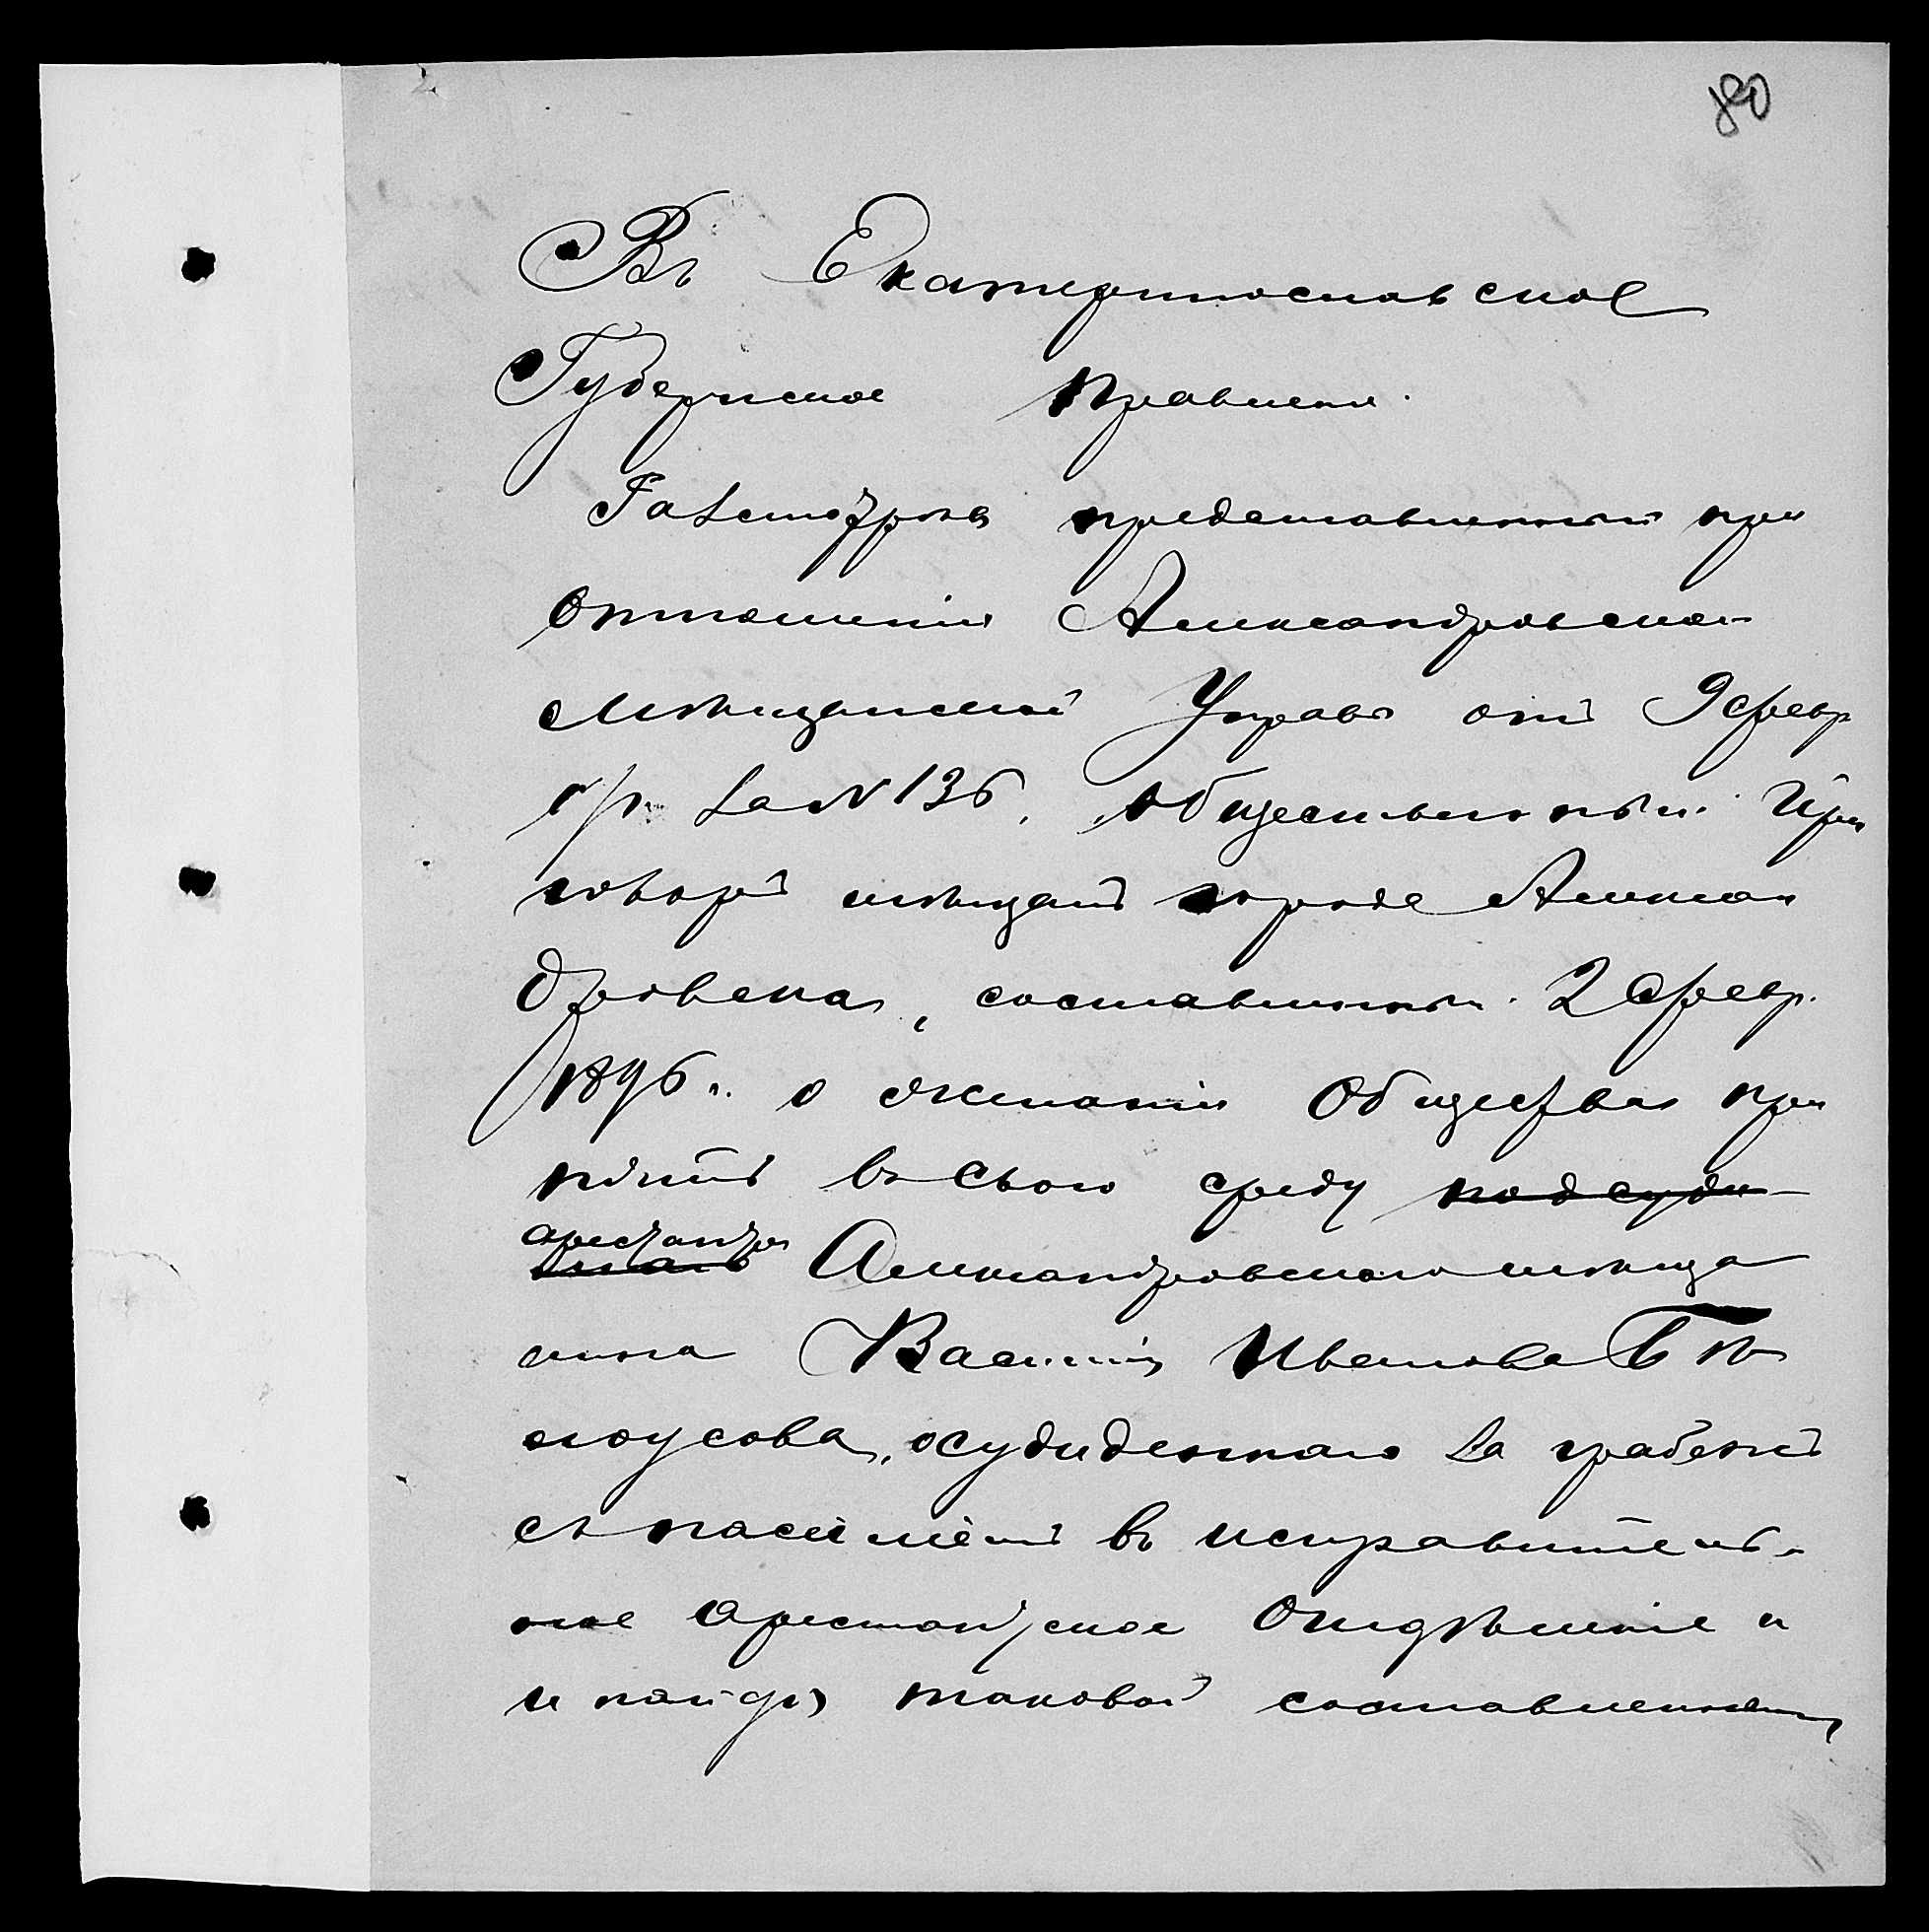 180
Въ Екатеринославское
Губернское Правленіе.
Разсмотрѣвъ представленный при
отношеніи Александровской
Мѣщанской Управы отъ 9 февр
с/г. за № 136, общественный при
говоръ мѣщанъ города Алексан
дровска, составленный 2 февр.
1896 г. о желаніи Общества при
нять въ свою среду подсуди
арестанта Александровскаго мѣща
нина Василія Иванова Бѣ
лоусова, осужденнаго за грабежъ
съ насиліемъ въ исправитель-
ное арестантское отдѣленіе и
и найдя таковой составленнымъ